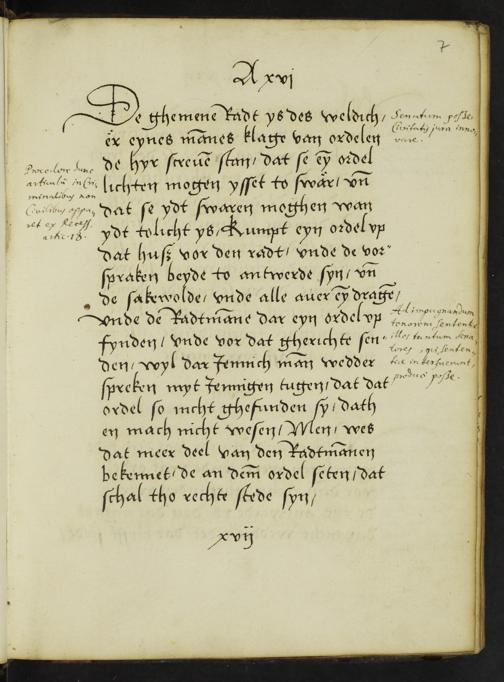 7
A xvj
De ghemene Radt ys des weldich,
er eynes mānes klage van ordelen
de hyr screuē stan, dat se eȳ ordel
lichten mogen ysset to swar, vn̄
dat se ydt swaren moghen wan
ydt tolicht ys, Kumpt eyn ordel vp
dat husz vor den radt, vnde de vor
spraken beyde to antwerde syn, vn̄
de sakewolde, vnde alle auer eȳ dragē,
vnde de Radtmāne dar eyn ordel vp
fynden, vnde vor dat gherichte sen
den, wyl dar Jennich mān wedder
spreken myt Jennigen tugen, dat dat
ordel so nicht ghefunden sy, dath
en mach nicht wesen, Men, wes
dat meer deel van den Radtmānen
bekennet, de an dem̄ ordel seten, dat
schal tho rechte stede syn,
xvij
Senatum posse
Civitatis jura inno-
vare.
Procedere hunc
articulū in Cri-
minalibus non
Civilibus appa-
ret ex Recess.
artic. 18.
Ad impugnandum
tenorem sententiæ
illos tantum Sena-
tores, qui senten-
tiæ interfuerunt,
produci posse.